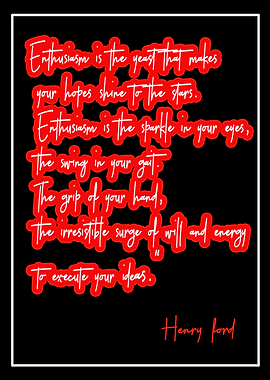 Enthusiasm is the yeast that makes
your hopes shine to the stars.
Enthusiasm is the sparkle in your eyes,
the swing in your gait.
The grip of your hand,
the irresistible surge of will and energy
"
to execute your ideas.
Henry ford